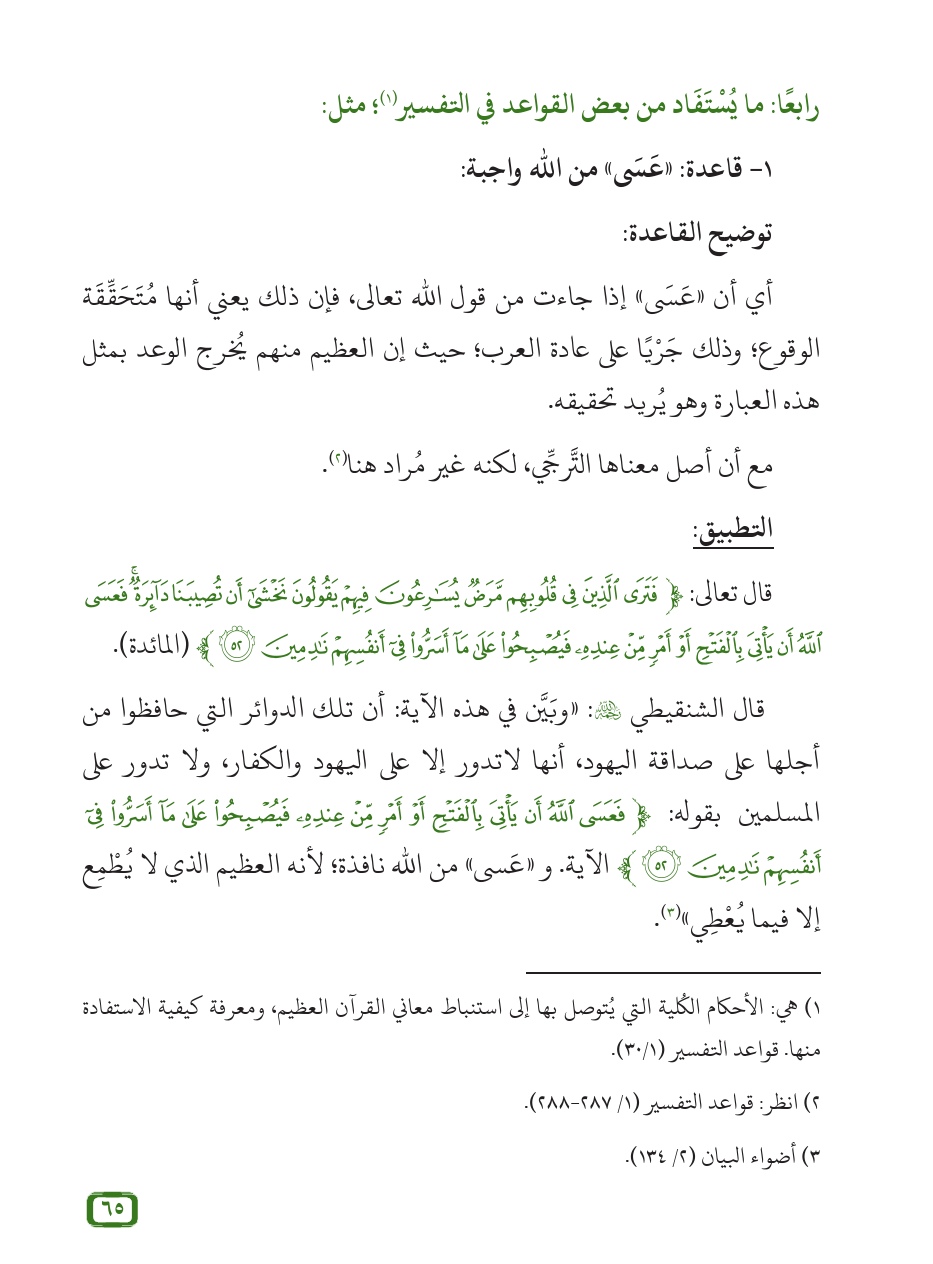 رابعًا: ما يُسْتَفَاد من بعض القواعد في التفسير(١)؛ مثل:
١- قاعدة: «عَسَى» من الله واجبة:
توضيح القاعدة:
أي أن «عَسَى» إذا جاءت من قول الله تعالى، فإن ذلك يعني أنها مُتَحَقِّقَة
الوقوع؛ وذلك جَرْيًا على عادة العرب؛ حيث إن العظيم منهم يُخرج الوعد بمثل
هذه العبارة وهو يُريد تحقيقه.
مع أن أصل معناها التَّرجِّي، لكنه غير مُراد هنا(٢).
التطبيق:
قال تعالى: ﴿ فَتَرَى ٱلَّذِينَ فِى قُلُوبِهِم مَّرَضٌ يُسَٰرِعُونَ فِيهِمْ يَقُولُونَ نَخْشَىٰٓ أَن تُصِيبَنَا دَآئِرَةٌ ۚ فَعَسَى
ٱللَّهُ أَن يَأْتِىَ بِٱلْفَتْحِ أَوْ أَمْرٍ مِّنْ عِندِهِۦ فَيُصْبِحُوا۟ عَلَىٰ مَآ أَسَرُّوا۟ فِىٓ أَنفُسِهِمْ نَٰدِمِينَ ٥٢ ﴾ (المائدة).
قال الشنقيطي ﵀: «وبَيَّن في هذه الآية: أن تلك الدوائر التي حافظوا من
أجلها على صداقة اليهود، أنها لاتدور إلا على اليهود والكفار، ولا تدور على
المسلمين بقوله: ﴿ فَعَسَى ٱللَّهُ أَن يَأْتِىَ بِٱلْفَتْحِ أَوْ أَمْرٍ مِّنْ عِندِهِۦ فَيُصْبِحُوا۟ عَلَىٰ مَآ أَسَرُّوا۟ فِىٓ
أَنفُسِهِمْ نَٰدِمِينَ ٥٢ ﴾ الآية. و «عَسى» من الله نافذة؛ لأنه العظيم الذي لا يُطْمِع
إلا فيما يُعْطِي»(٣).
١) هي: الأحكام الكُلية التي يُتوصل بها إلى استنباط معاني القرآن العظيم، ومعرفة كيفية الاستفادة
منها. قواعد التفسير (٣٠/١).
٢) انظر: قواعد التفسير (١/ ٢٨٧-٢٨٨).
٣) أضواء البيان (٢/ ١٣٤).
٦٥